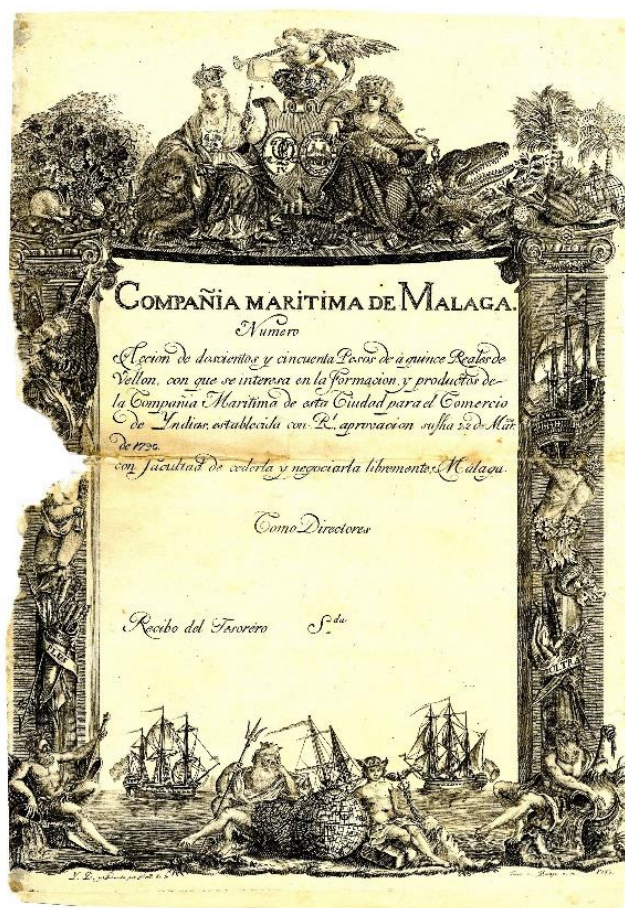 COMPAÑIA MARITIMA DE MALAGA.
Numero
Accion de doscientos y cincuenta Pesos de à quince Reales de
Vellon, con que se interesa en la formacion, y productos de
la Compañia Maritima de esta Ciudad para el Comercio
de Yndias, establecida con Rl. aprovacion su fha 22 de Mar.
de 1790.
con facultad de cederla y negociarla libremente, Malaga.
Como Directores
Recibo del Tesorero Sda.
PLUS
ULTRA